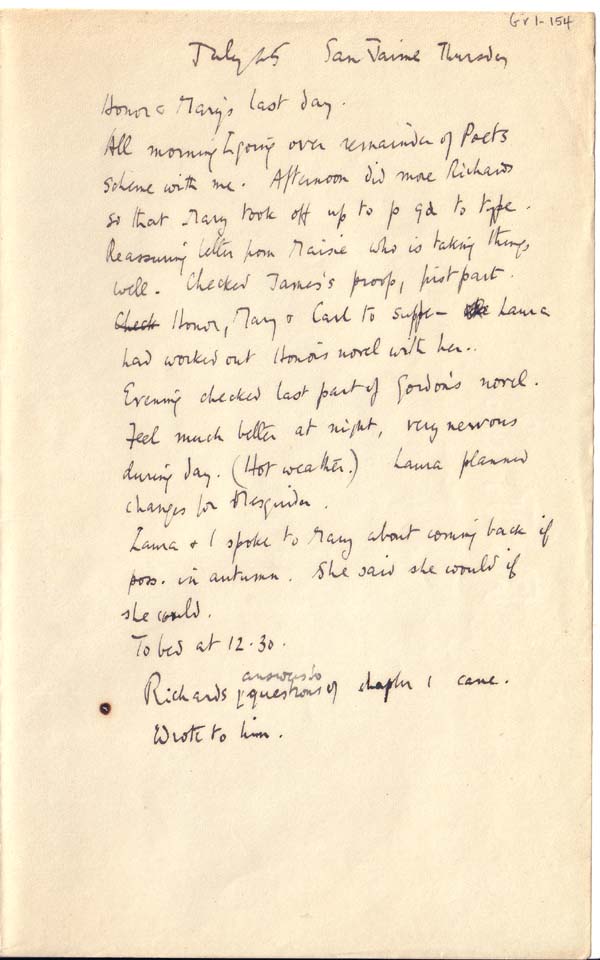 Gr 1-154
July 25 San Jaime Thursday
Honor & Mary's last day.
All morning L going over remainder of Poets
scheme with me. Afternoon did more Richards
so that Mary took off up to p 92 to type.
Reassuring letter from Maisie who is taking things
well. Checked James's proofs, first part.
Check Honor, Mary & Carl to supper Laura
had worked out Honor's novel with her.
Evening checked last part of Gordon's novel.
Feel much better at night, very nervous
during day. (Hot weather.) Laura planned
changes for
Laura & I spoke to Mary about coming back if
poss. in autumn. She said she would if
she could.
To bed at 12.30.
answers to
Richards questions of chapter 1 came.
Wrote to him.